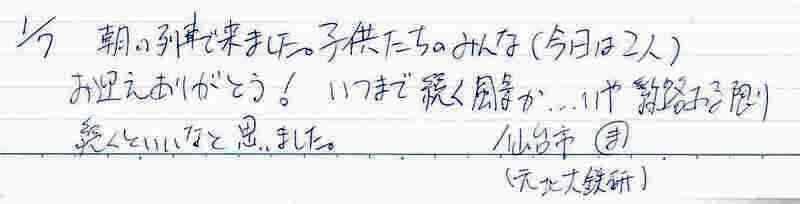 1/7 朝の列車で来ました。子供たちのみんな(今日は2人)
お迎えありがとう! いつまで続く風景か...いや 線路ある限り
続くといいなと思いました。
仙台市 ま
(元北大鉄研)